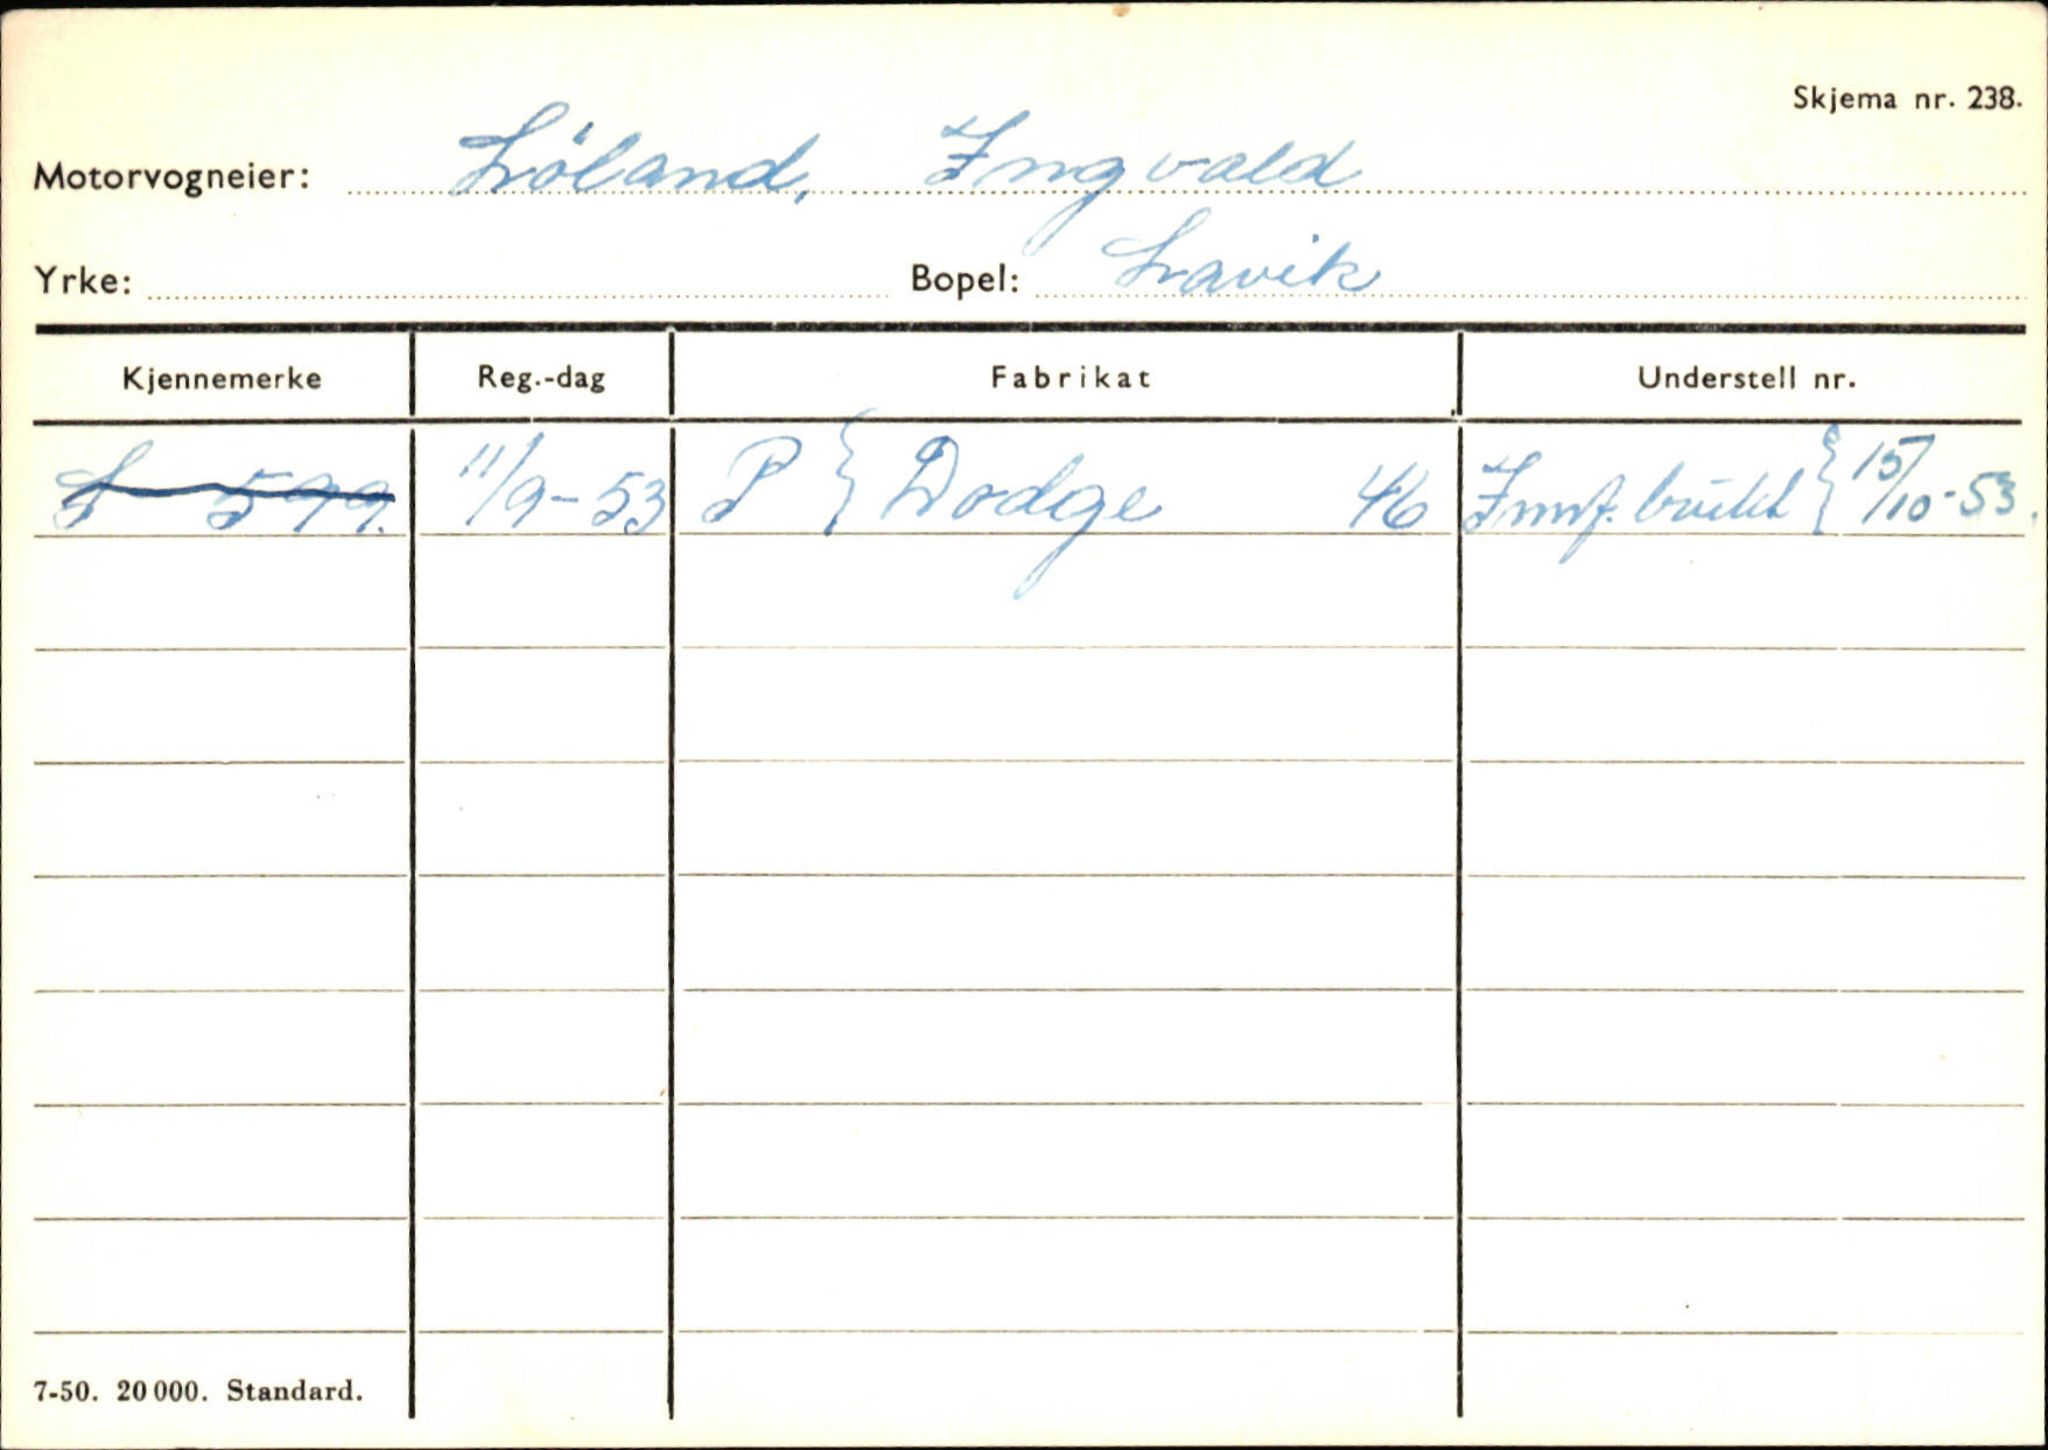 Skjema nr. 238.
Motorvogneier: Löland, Ingvald
Yrke: Bopel: Lavik
Kjennemerke Reg.-dag Fabrikat Understell nr.
S 599. 11/9-53 P } Dodge 46 Innf. brukt } 15/10-53.
7-50. 20 000. Standard.